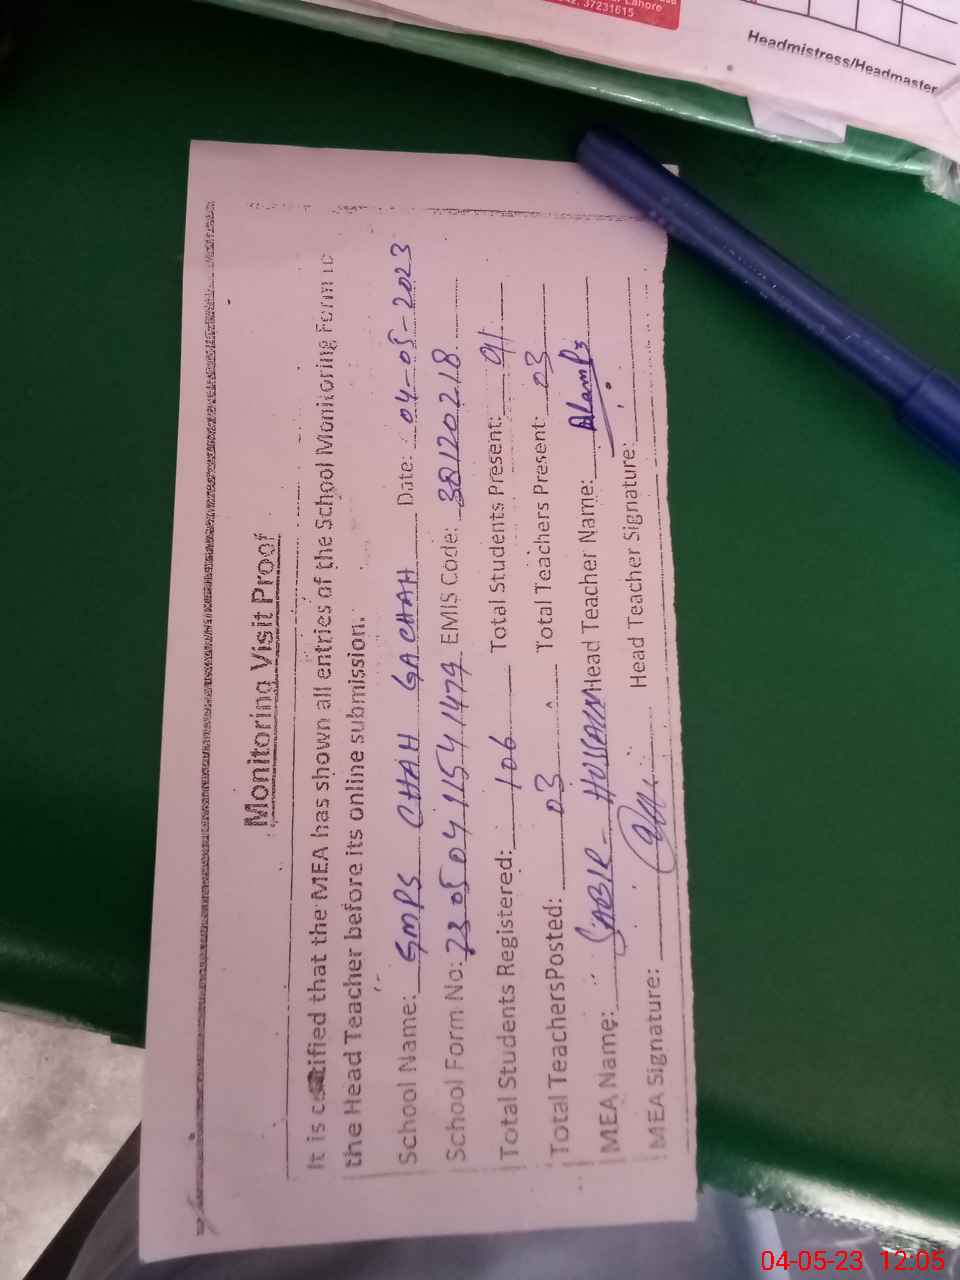 Lahore
37231615
Headmistress/Headmaster
Monitoring Visit Proof
It is certified that the MEA has shown all entries of the School Monitoring Form to
the Head Teacher before its online submission.
School Name: GMPS CHAH GACHAH Date: 04-05-2023
School Form No: 230504 1154 1474 EMIS Code: 38120218
Total Students Registered: 106 Total Students Present: 91
Total Teachers Posted: 03 Total Teachers Present: 03
MEA Name: SABIR HUSSAIN Head Teacher Name:
MEA Signature: Head Teacher Signature:
04-05-23 12:05